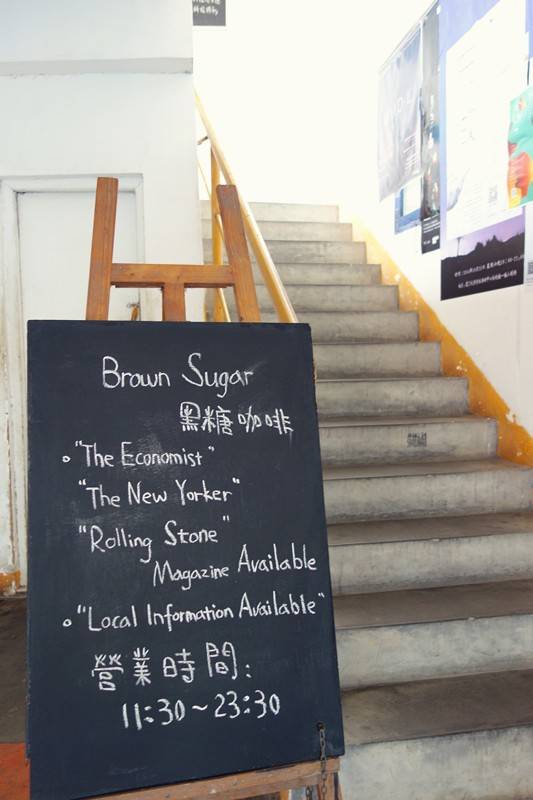 Brown Sugar
黑糖咖啡
"The Economist"
"The New Yorker"
"Rolling Stone"
Magazine Available
"Local Information Available"
營業時間:
11:30~23:30